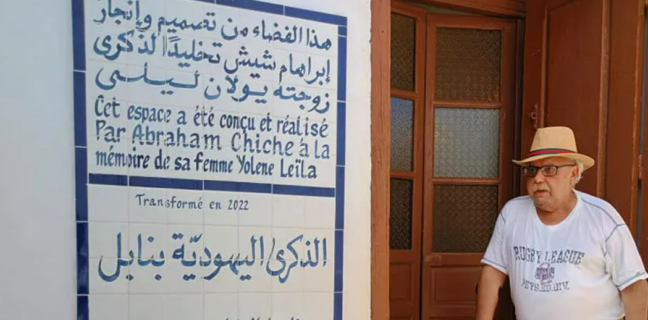 هذا الفضاء من تصميم وإنجاز
إبراهام شيش تخليدًا لذكرى
زوجته يولان ليلى
Cet espace a été conçu et réalisé
Par Abraham Chiche à la
mémoire de sa femme Yolene Leïla
Transformé en 2022
الذكرى اليهوديّة بنابل
RUGBY LEAGUE